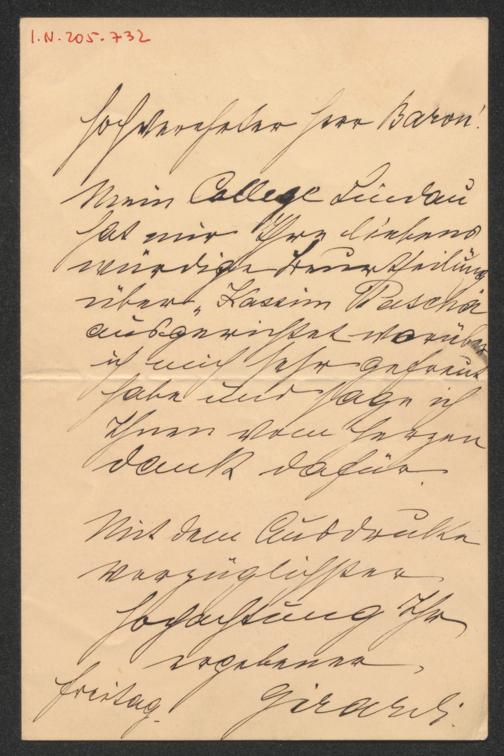 I.N. 205.732
Hochverehrter Herr Baron!
Mein College Lindau
hat mir Ihre liebens
würdige Beurtheilung
über „Kassim Pascha
ausgerichtet worüber
ich mich sehr gefreut
habe und sage ich
Ihnen vom Herzen
dank dafür.
Mit dem Ausdrucke
vorzüglichster
Hochachtung Ihr
ergebener,
Freitag. Girardi.